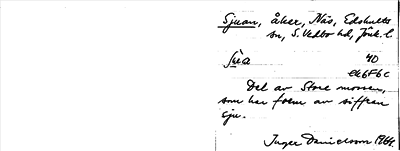 Sjuan, åker, Näs, Edshults
sn, S. Vedbo hd, Jönk. l
40
ek6F6c
Del av Store mossen,
som har formen av siffran
sju.
Inger Danielsson 1964.